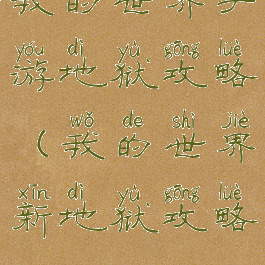 我的世界手
yóu dì yù gōng lüè
游地狱攻略
wǒ de shì jiè
(我的世界
xīn dì yù gōng lüè
新地狱攻略